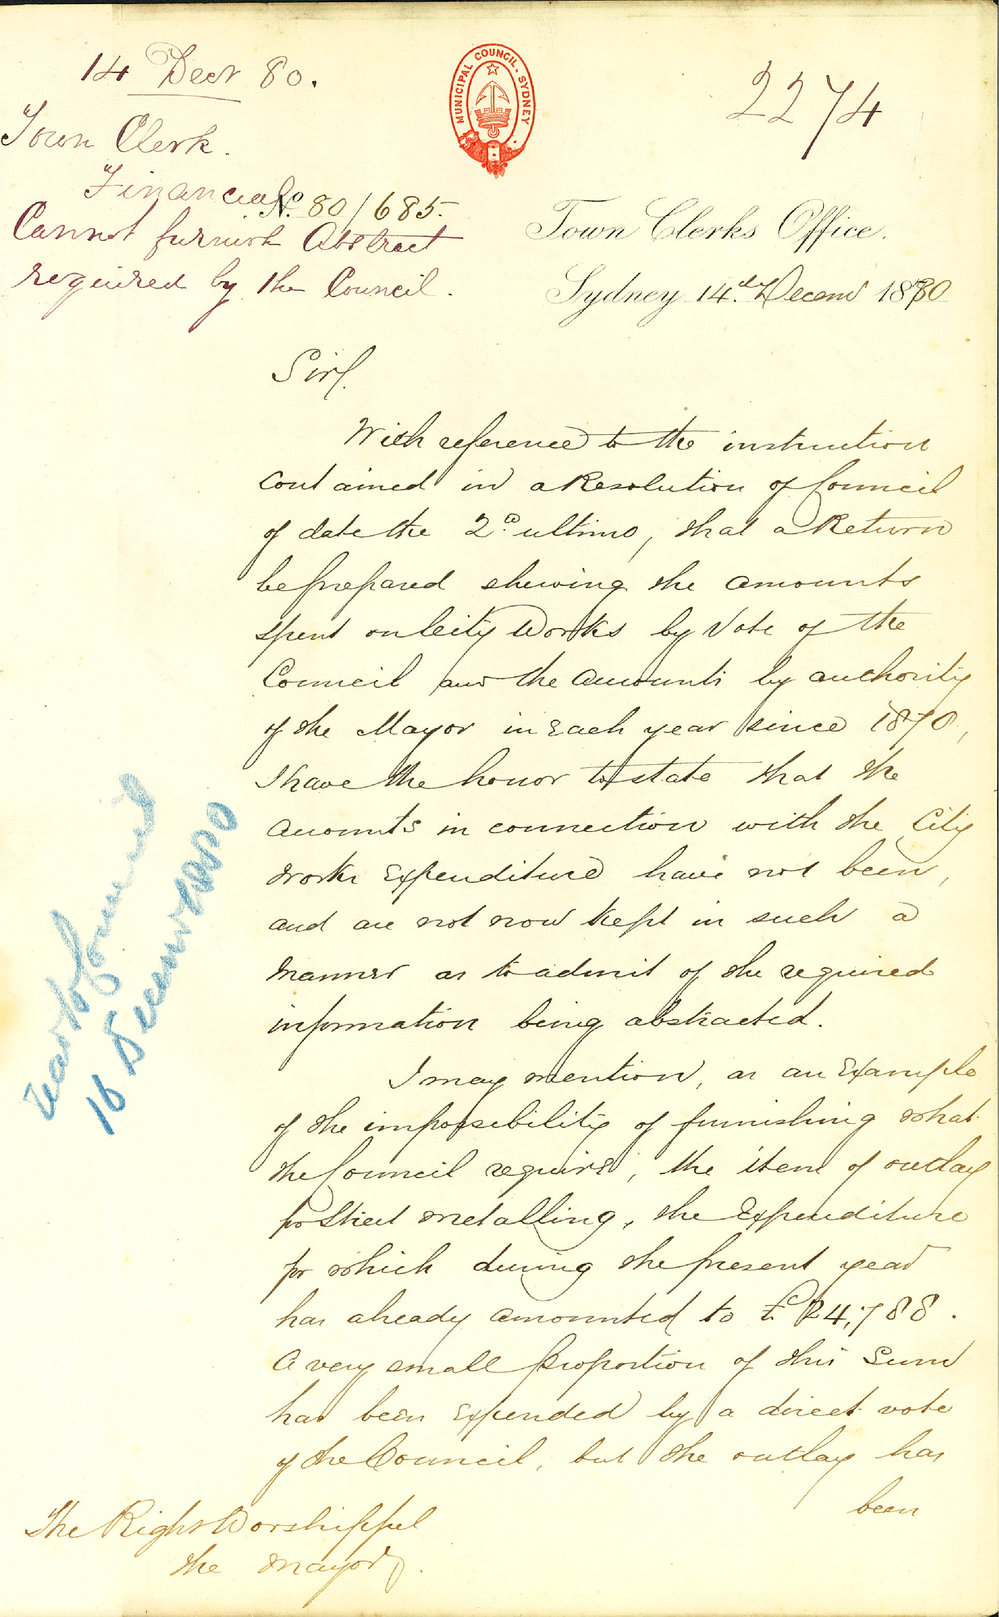 14 Decr 80.
Town Clerk.
Financial
Cannot furnish Abstract
required by the Council.
MUNICIPAL COUNCIL. SYDNEY
2274
No. 80/685.
Town Clerks Office.
Sydney 14th Decemr 1880
Sir,
With reference to the instruction
contained in a Resolution of Council
of date the 2d ultimo, that a Return
be prepared shewing the amounts
spent on City Works by Vote of the
Council and the amounts by authority
of the Mayor in each year since 1870,
I have the honor to state that the
accounts in connection with the City
Works Expenditure have not been,
and are not now kept in such a
manner as to admit of the required
information being abstracted.
I may mention, as an Example
of the impossibility of furnishing what
the Council require, the item of outlay
for Street metalling, the Expenditure
for which during the present year
has already amounted to £24,788.
A very small proportion of this Sum
has been Expended by a direct vote
of the Council, but the outlay has
been
The Right Worshipful
the Mayor.
Council
16 December 1880